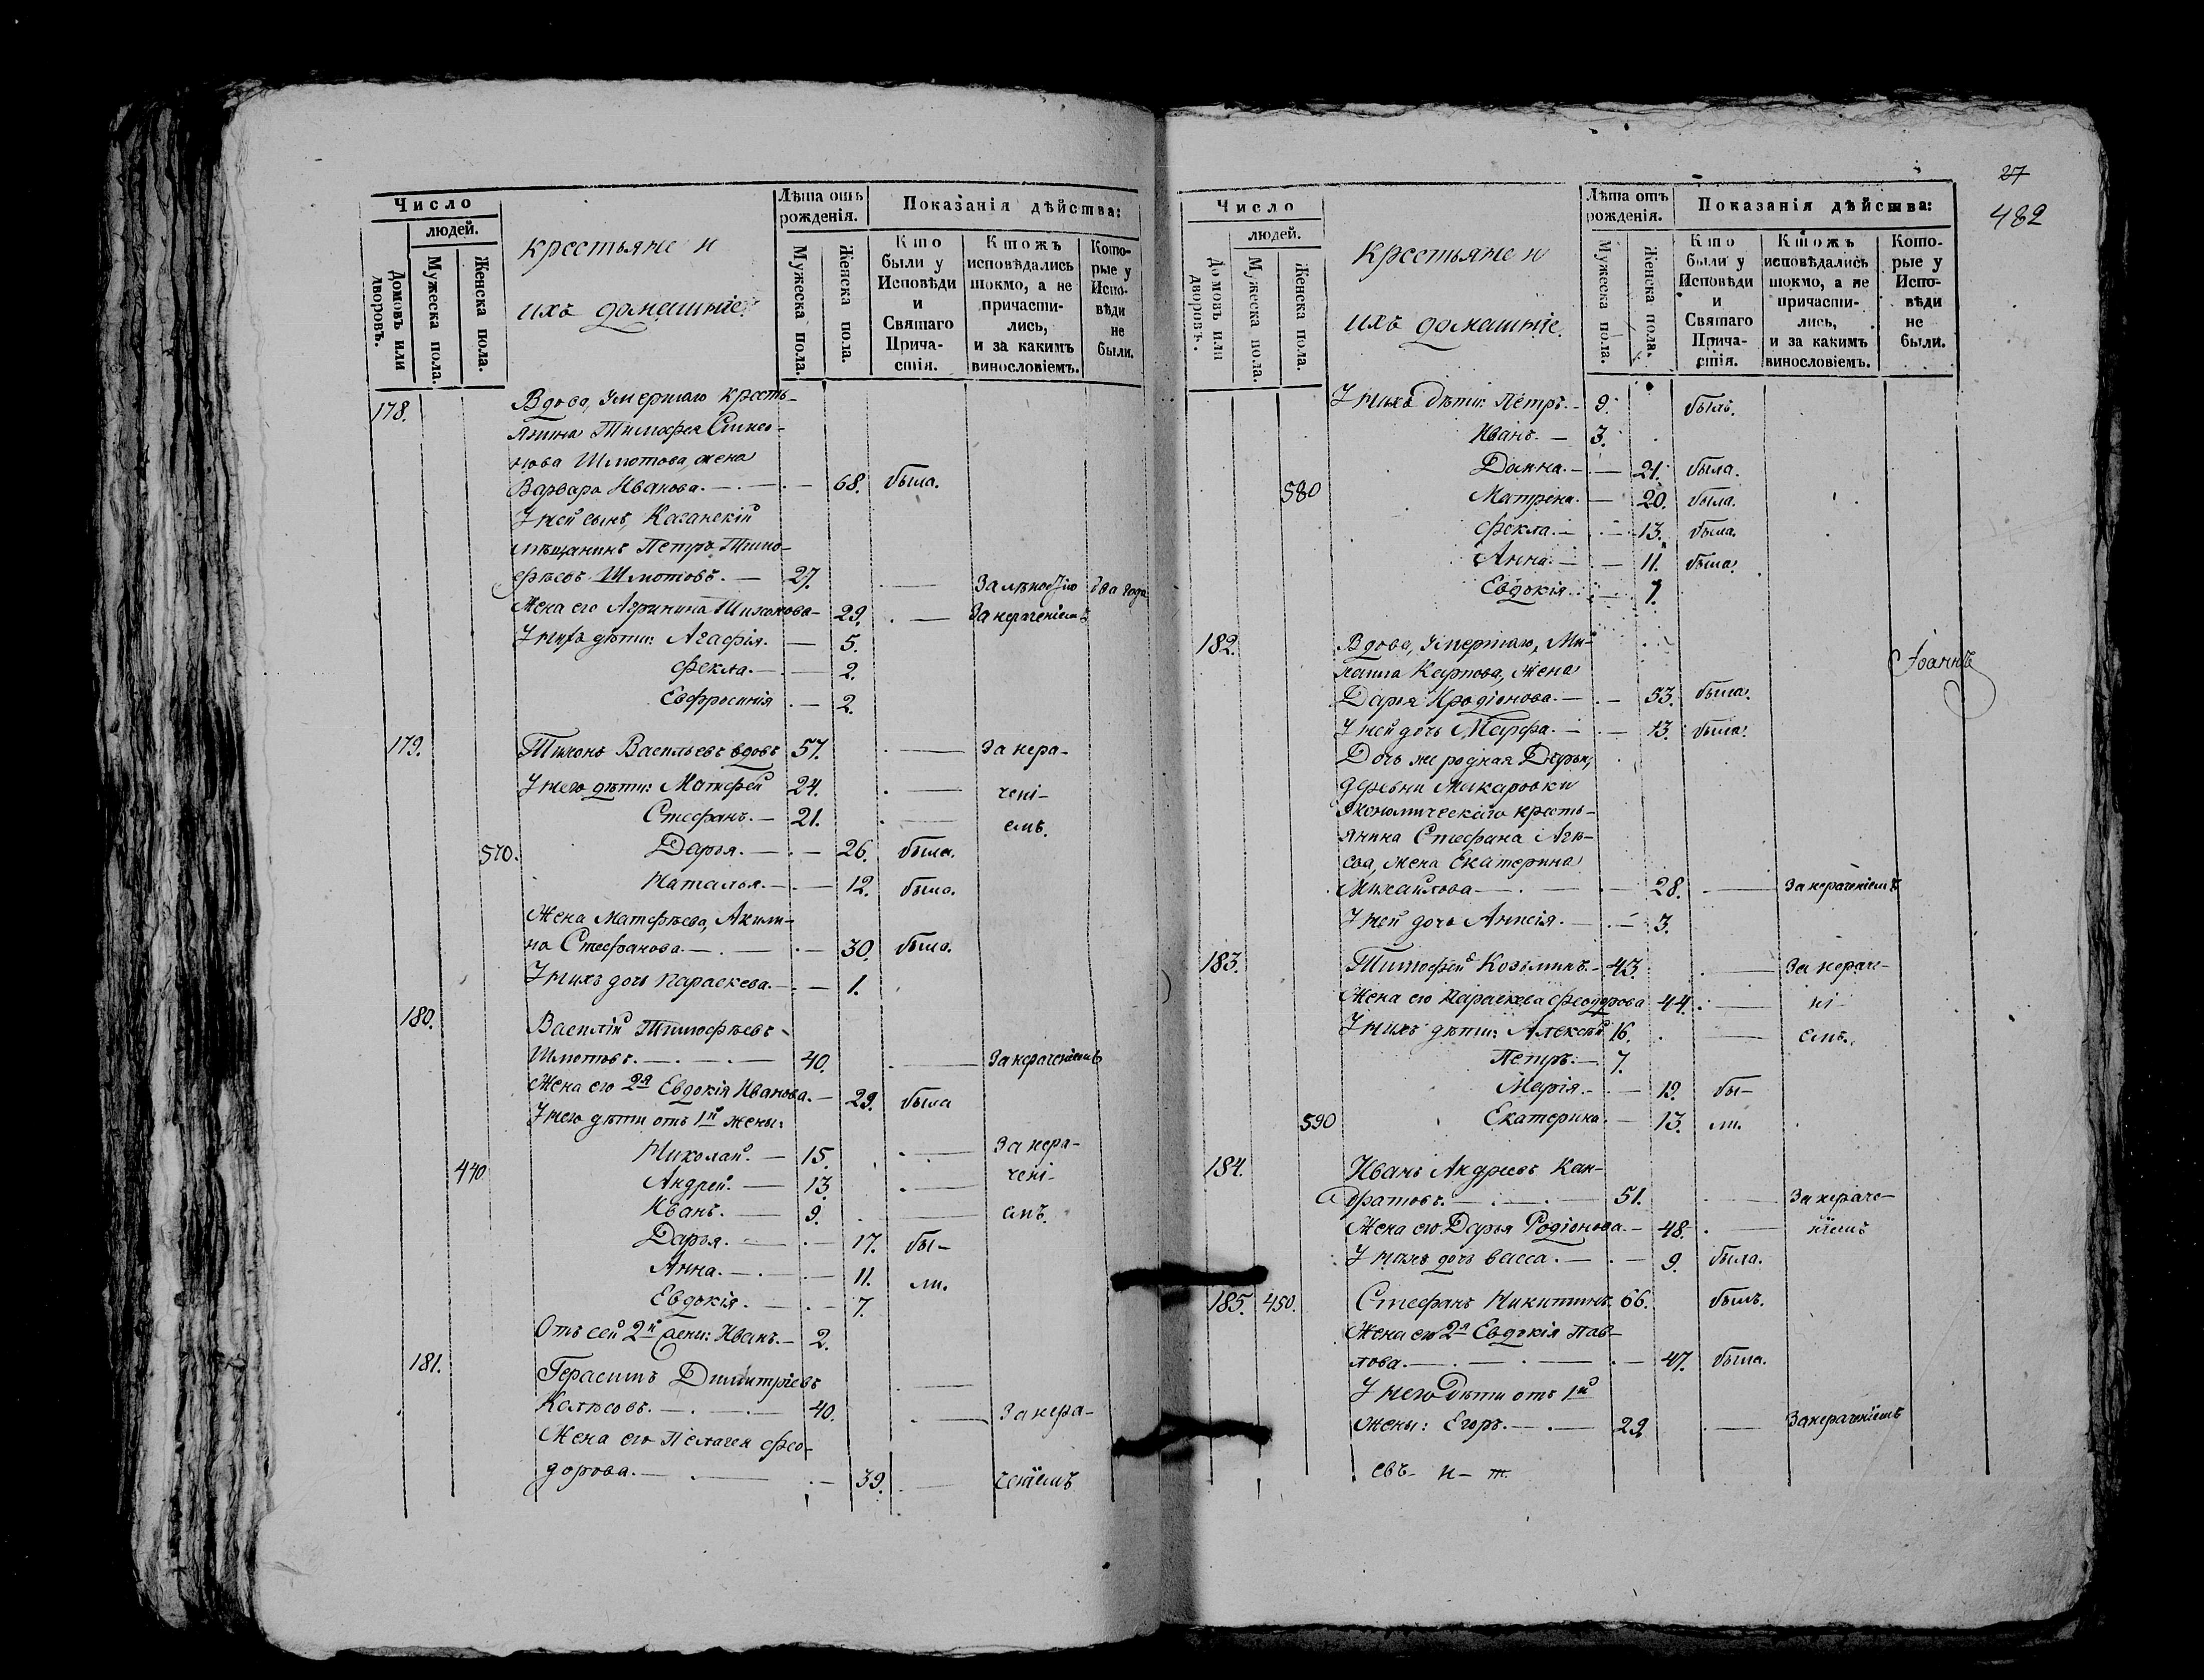 Число
людей.
Домовъ или дворовъ.
Мужеска пола.
Женска пола.
крестьяне и
ихъ домашніе.
Лѣта отъ рожденія.
Мужеска пола.
Женска пола.
Показанія дѣйства:
Кто были у Исповѣди и Святаго Прича- стія.
Ктожъ исповѣдались токмо, а не причасти- лись, и за какимъ винословіемъ.
Кото- рые у Испо- вѣди не были.
178. Вдова, умершаго кресть-
янина Тимофея Симео-
нова Шмотова, жена
Варвара Иванова. — 68. была.
У ней сынъ, Казанскій
мѣщанинъ Петръ Тимо-
фѣевъ Шмотовъ. — 27. — За лѣностію два года
Жена его Агрипина Тихонова — 29. — За нераченіемъ
У нихъ дѣти: Агафія. — 5.
Фекла. — 2.
Евфросинія — 2.
179. Тихонъ Васильевъ вдовъ 57. — За нера-
У него дѣти: Матфей 24. — чені-
Стефанъ. — 21. — емъ.
570. Дарья. — 26. была.
Наталья. — 12. была.
Жена Матфѣева, Акили-
на Стефанова. — 30. была.
У нихъ дочь Параскева. — 1.
180. Василій Тимофѣевъ
Шмотовъ. — 40. — За нераченіемъ
Жена его 2я Евдокія Иванова. — 29. была
У него дѣти отъ 1й жены:
Николай. — 15. — За нера-
440 Андрей. — 13. — чені-
Иванъ. — 9. — емъ.
Дарья. — 17. бы-
Анна. — 11. ли.
Евдокія. — 7.
Отъ сей 2й жены: Иванъ. — 2.
181. Герасимъ Димитріевъ —
Колѣсовъ. — 40. — За нера-
Жена его Пелагея Фео-
дорова. — 39. — ченіемъ
27
482
Число
людей.
Домовъ или дворовъ.
Мужеска пола.
Женска пола.
крестьяне и
ихъ домашніе.
Лѣта отъ рожденія.
Мужеска пола.
Женска пола.
Показанія дѣйства:
Кто были у Исповѣди и Святаго Прича- стія.
Ктожъ исповѣдались токмо, а не причасти- лись, и за какимъ винословіемъ.
Кото- рые у Испо- вѣди не были.
У нихъ дѣти: Петръ. — 9. былъ.
Иванъ. — 3.
Домна. — 21. была.
580 Матрена. — 20. была.
Фекла. — 13. была.
Анна. — 11. была.
Евдокія. — 1.
182. Вдова, умершаго, Ми-
хаила Карпова, жена
Іоаннъ
Дарья Иродіонова. — 53. была.
У ней дочь Марфа. — 13. была.
Дочь же родная Дарьи,
деревни Макаровки
экономическаго кресть-
янина Стефана Агѣ-
ева, жена Екатерина
Михайлова — 28. — За нераченіемъ
У ней дочь Анисія. — 3.
183. Тимофей Козьминъ. — 43. — За нераче-
Жена его Параскева Феодорова 44. — ні-
У нихъ дѣти: Алексѣй 16. — емъ.
Петръ. — 7.
Марія. — 19. бы-
590 Екатерина. — 13. ли.
184. Иванъ Андреевъ Кан-
дратовъ. — 51. — За нераче-
Жена его Дарья Родіонова. — 48. — ніемъ
У нихъ дочь Васса. — 9. была.
185. 450. Стефанъ Никитинъ. 66. былъ.
Жена его 2я Евдокія Пав-
лова. — 47. была.
У него дѣти отъ 1й
жены: Егоръ. — 29. — За нераченіемъ
евъ- и- т.